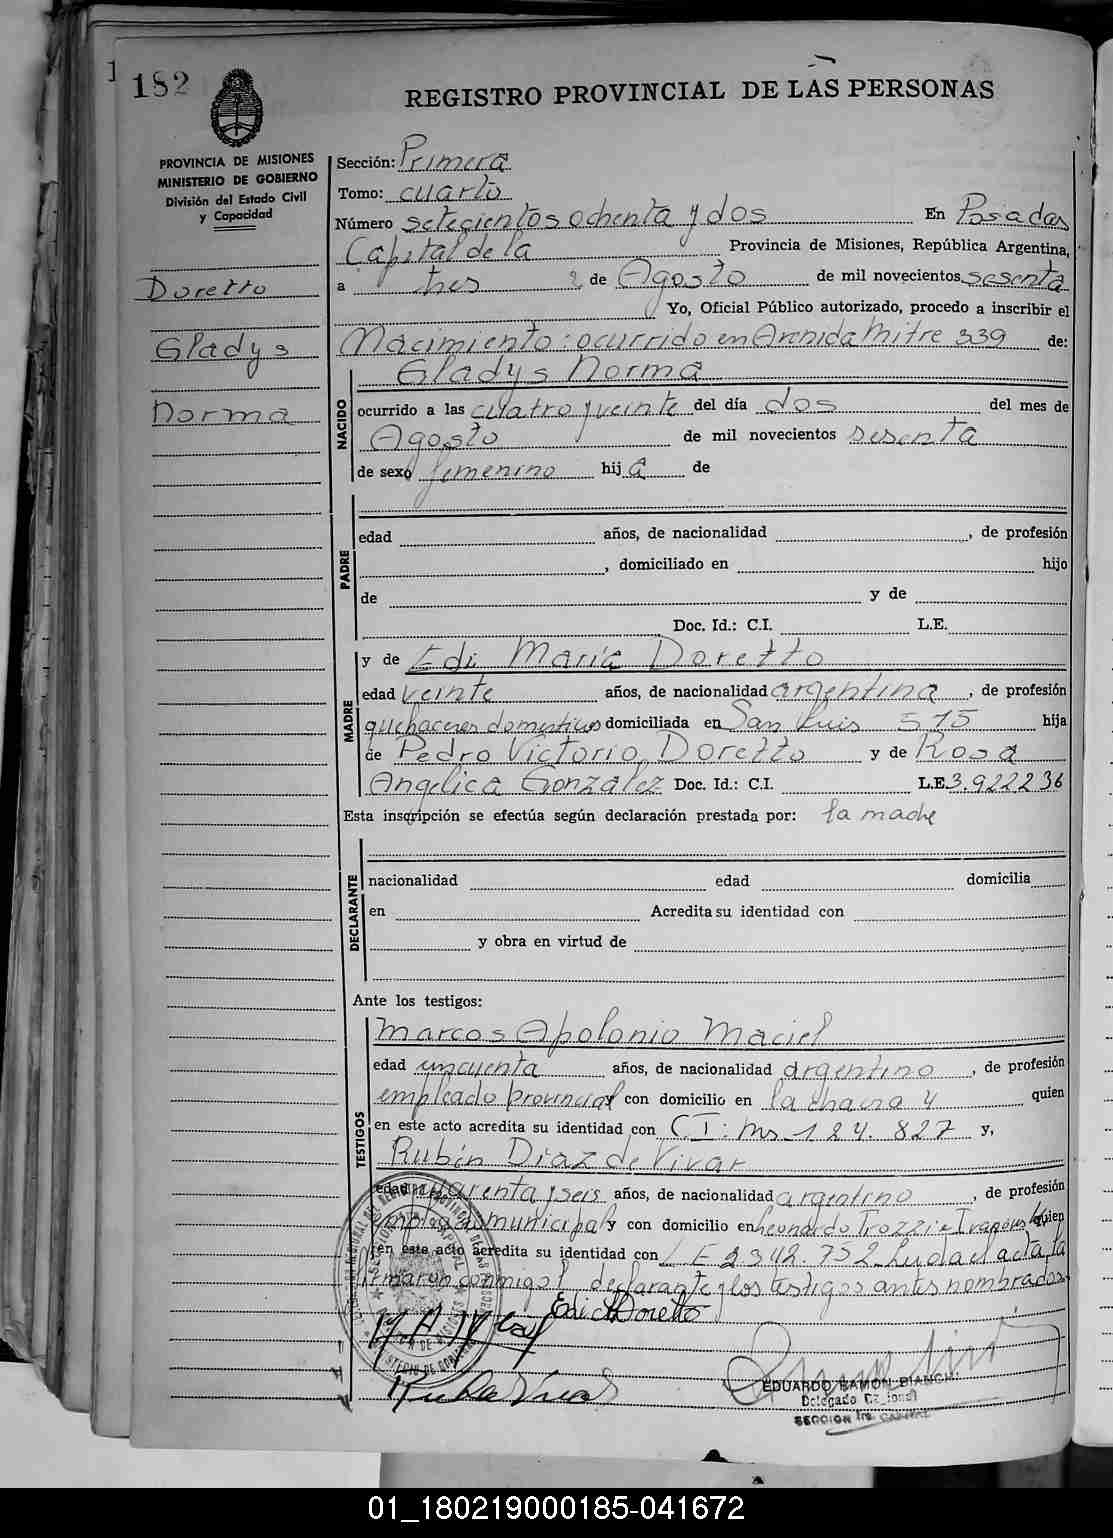 182
REGISTRO PROVINCIAL DE LAS PERSONAS
PROVINCIA DE MISIONES
MINISTERIO DE GOBIERNO
División del Estado Civil
y Capacidad
Doretto
Gladys
Norma
Sección: Primera
Tomo: cuarto
Número setecientos ochenta y dos En Posadas
Capital de la Provincia de Misiones, República Argentina,
a tres de Agosto de mil novecientos sesenta
Yo, Oficial Público autorizado, procedo a inscribir el
Nacimiento: ocurrido en Avenida Mitre 339 de:
NACIDO
Gladys Norma
ocurrido a las cuatro y veinte del día dos del mes de
Agosto de mil novecientos sesenta
de sexo femenino hija de
PADRE
edad años, de nacionalidad , de profesión
, domiciliado en hijo
de y de
Doc. Id.: C.I. L.E.
MADRE
y de Edi María Doretto
edad veinte años, de nacionalidad argentina, de profesión
quehaceres domesticos domiciliada en San Luis 515 hija
de Pedro Victorio Doretto y de Rosa
Angélica González Doc. Id.: C.I. L.E. 3.922236
Esta inscripción se efectúa según declaración prestada por: la madre
DECLARANTE
nacionalidad edad domicilia
en Acredita su identidad con
y obra en virtud de
Ante los testigos:
TESTIGOS
Marcos Apolonio Maciel
edad cincuenta años, de nacionalidad argentino, de profesión
empleado provincial con domicilio en la chacra 4 quien
en este acto acredita su identidad con CI: Ms 124.827 y,
Rubén Diaz de Vivar
edad cuarenta y seis años, de nacionalidad argentino, de profesión
empleado municipal y con domicilio en Leonardo Trozzi e quien
en este acto acredita su identidad con LE 2342.752 Leída el acta la
firmaron conmigo declarante y los testigos antes nombrados
Edi M Doretto
EDUARDO RAMON BIANCHI
Delegado
SECCION 1ra. CAPITAL
01_180219000185-041672